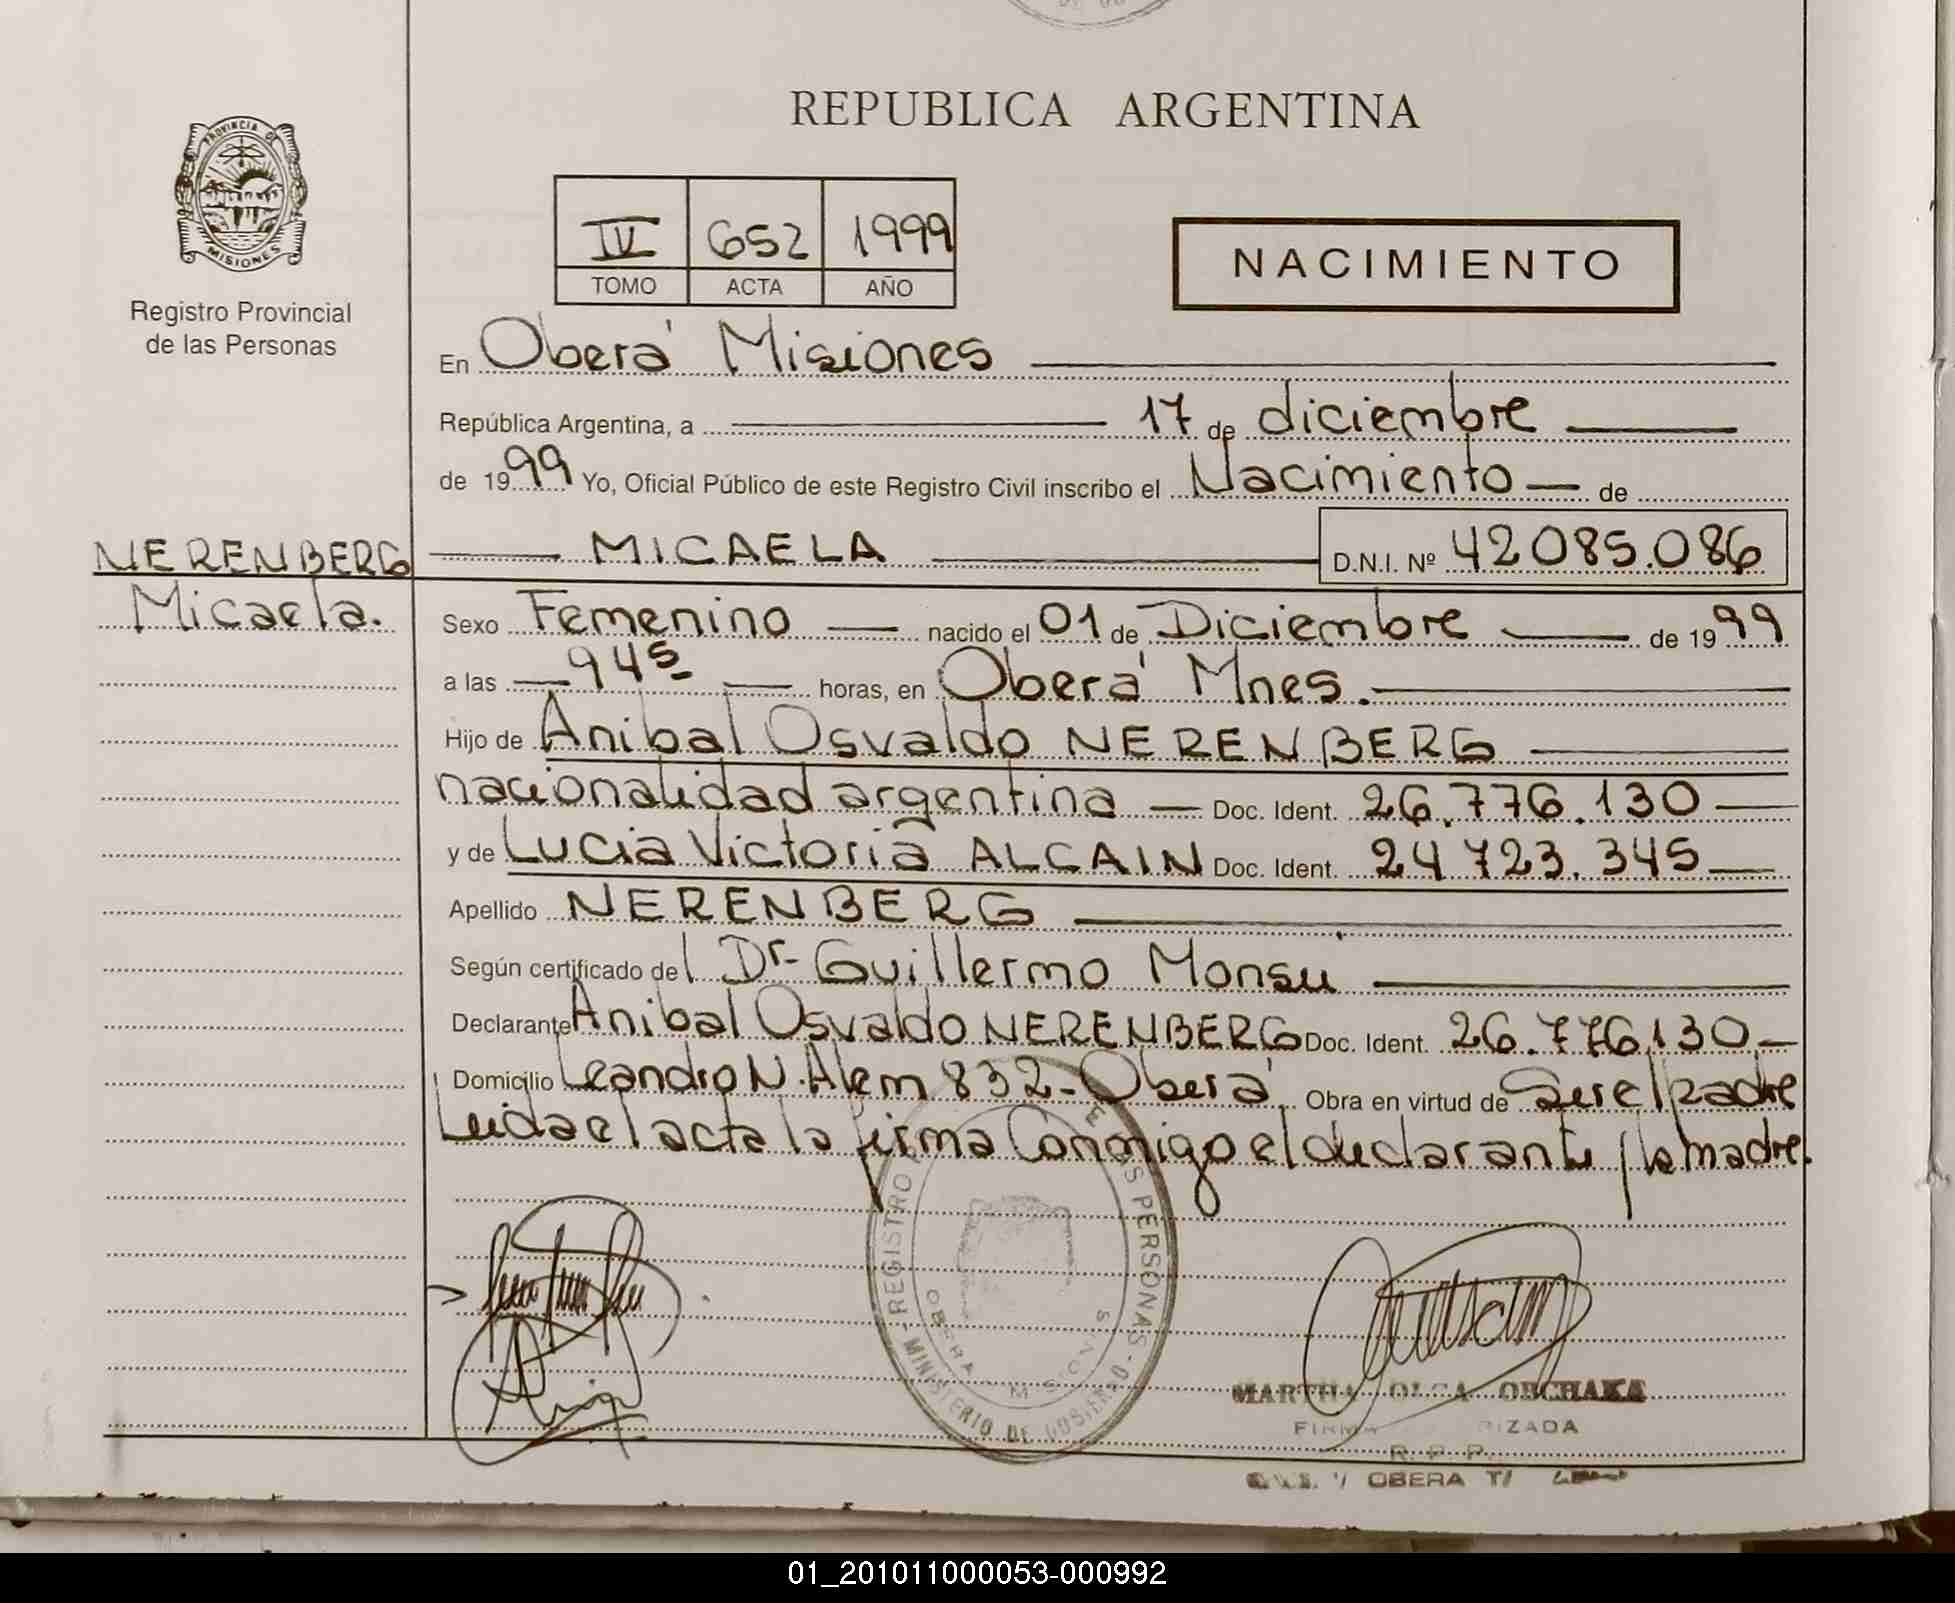 REPUBLICA ARGENTINA
PROVINCIA DE
MISIONES
Registro Provincial
de las Personas
IV 652 1999
TOMO ACTA AÑO
NACIMIENTO
En Oberá Misiones
República Argentina, a 17 de diciembre
de 1999 Yo, Oficial Público de este Registro Civil inscribo el Nacimiento de
NERENBERG MICAELA D.N.I. Nº 42085.086
Micaela. Sexo Femenino nacido el 01 de Diciembre de 1999
a las 945 horas, en Oberá Mnes.
Hijo de Anibal Osvaldo NERENBERG
nacionalidad argentina Doc. Ident. 26.776.130
y de Lucia Victoria ALCAIN Doc. Ident. 24723.345
Apellido NERENBERG
Según certificado del Dr. Guillermo Monsu
Declarante Anibal Osvaldo NERENBERG Doc. Ident. 26.776.130
Domicilio Leandro N. Alem 832- Oberá Obra en virtud de Ser el padre
Leida el acta la firma Conmigo el declarante y la madre.
REGISTRO PERSONAS
OBERA MISIONES
MINISTERIO DE GOBIERNO
MARTHA OLGA OBCHAKA
FIRMA RIZADA
R. P. P.
OBERA
01_201011000053-000992